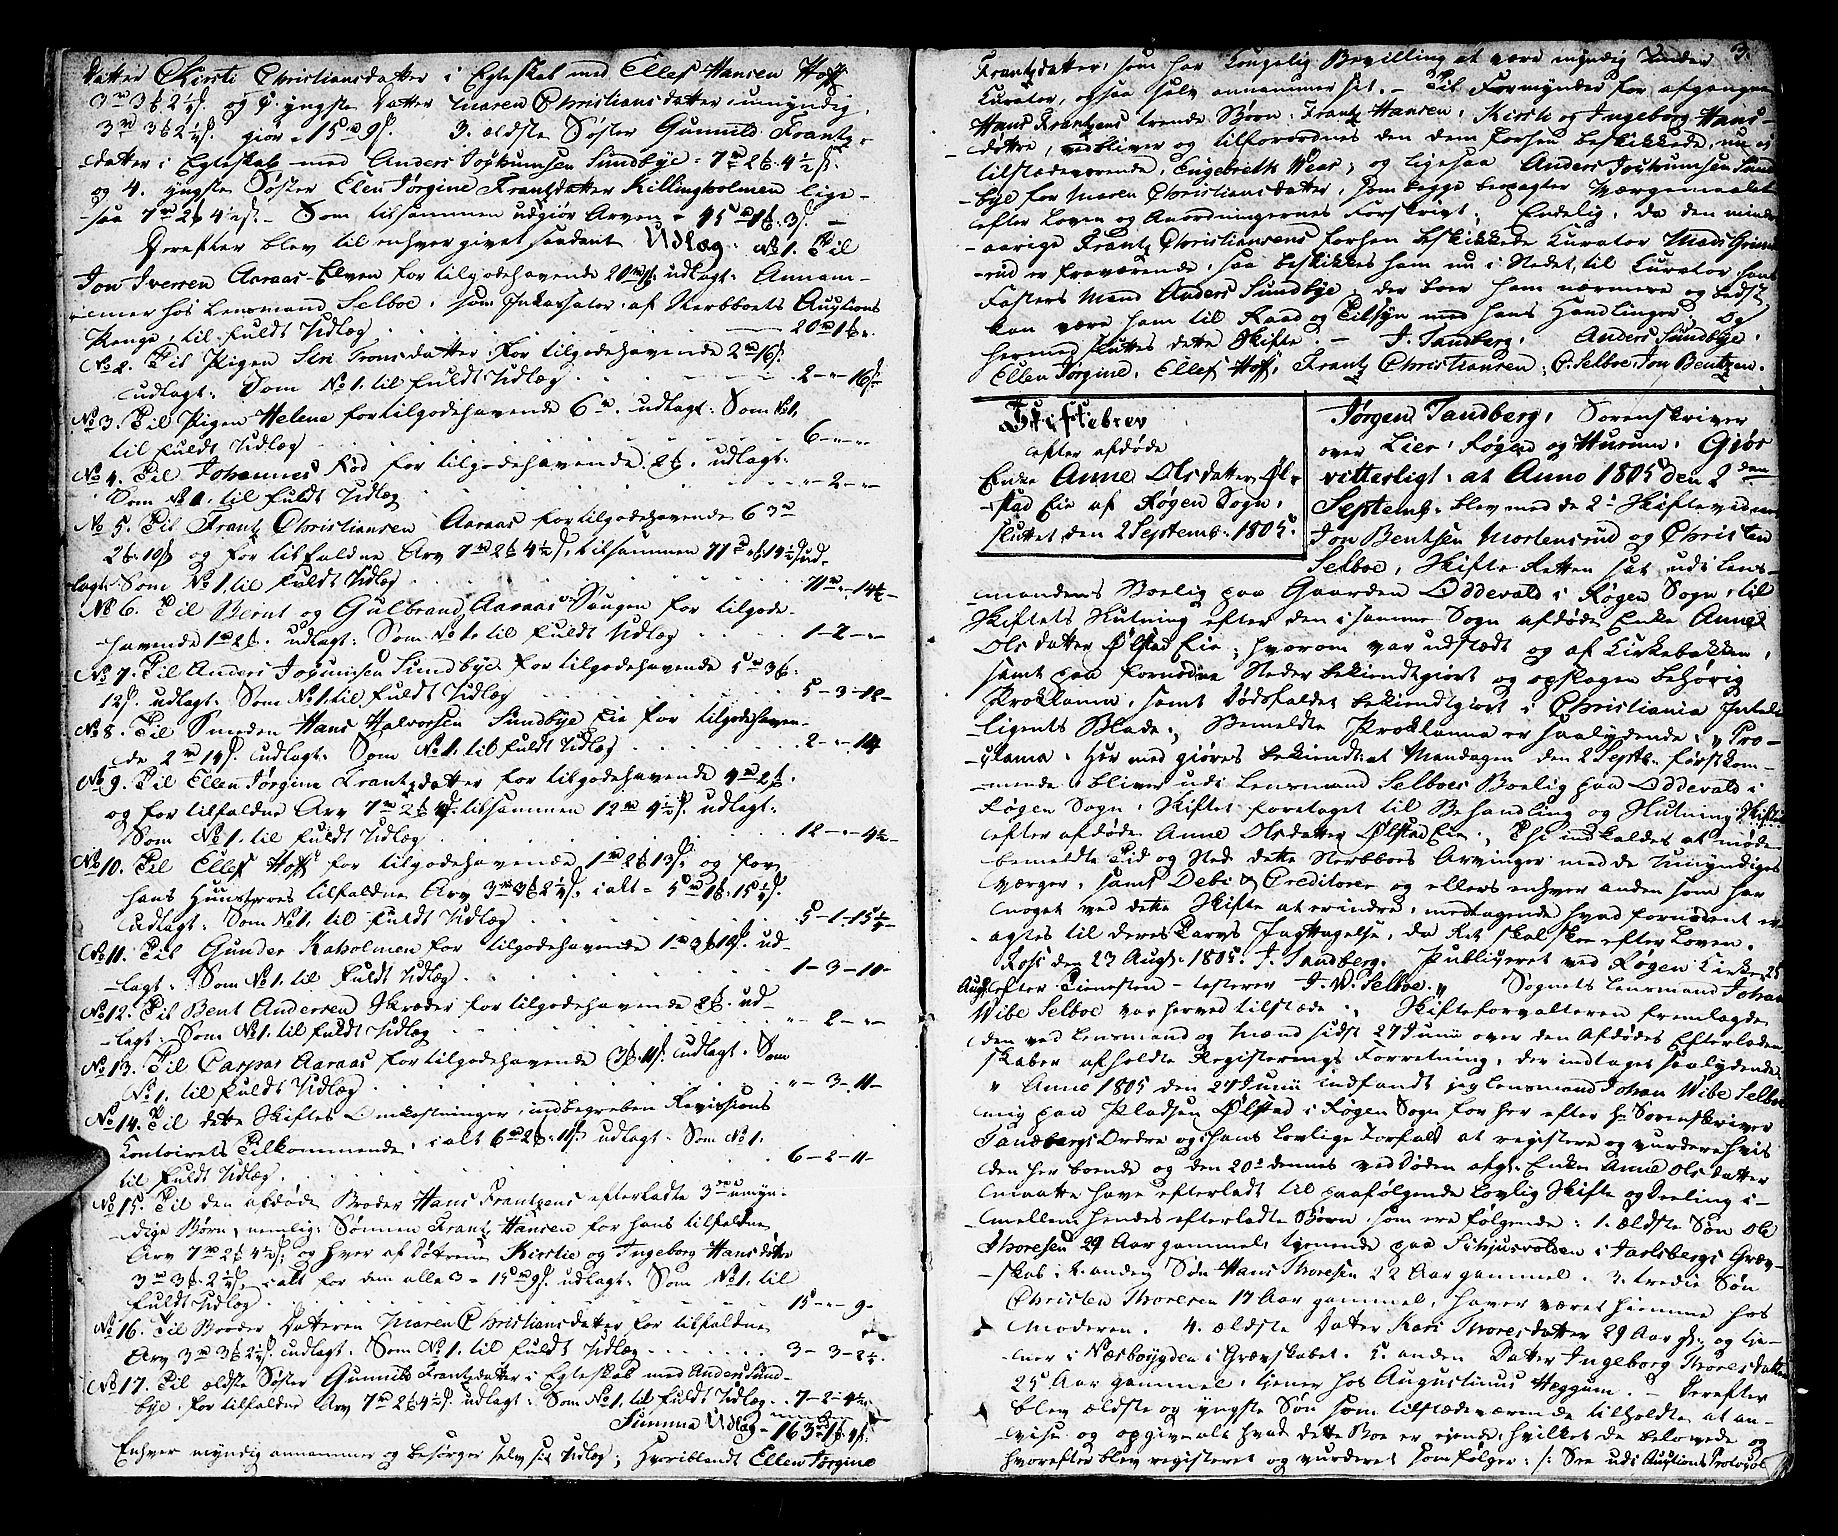 datter Kirsti Christiansdatter i Egteskab med Ellef Hansen Hoff
3 rd 3 ß 2¼ s. og 2. yngste Datter Maren Christiansdatter umyndig
3 rd 3 ß 2¼ s. giør 15 rd 9 s. 3. ældste Søster Gunnild Frantz-
datter i Egteskab med Anders Joskumsen Sundbye = 7 rd 2 ß 4½ s.
og 4. yngste Søster Elen Jørgine Frantzdatter Killingholmen lige-
saa 7 rd 2 ß 4½ s. - Som tilsammen udgiør Arven = 45 rd 1 ß 3 s. -
Derefter blev til enhver givet saadant Udlæg. No 1. Til
Jon Iversen Aaraas-Elven for tilgodehavende 20 rd 1 ß udlagt: Annam-
mer hos Lensmand Selboe, som Inkassator af Sterbboets Auctions
Penge, til fuldt Udlæg . . . 20 rd 1 ß -
No 2. Til Pigen Siri Tronsdatter for tilgodehavende 2 rd 16 s.
udlagt: Som No 1. til fuldt Udlæg . . . 2 - " - 16 s.
No 3. Til Pigen Helene for tilgodehavende 6 rd. udlagt: Som No 1.
til fuldt Udlæg . . . 6 - " - "
No 4. Til Johannes Rød for tilgodehavende 2 ß. udlagt:
Som No 1. til fuldt Udlæg . . . " - 2 - "
No 5. Til Frantz Christiansen Aaraas for tilgodehavende 63 rd
2 ß 10 s og for tilfaldne Arv 7 rd 2 ß 4½ s, tilsammen 71 rd " ß 14½ s ud-
lagt: Som No 1. til fuldt Udlæg . . . 71 rd " - 14½ -
No 6. Til Bernt og Gulbrand Aaraas Saugen for tilgode-
havende 1 rd 2 ß. udlagt: Som No 1. til fuldt Udlæg . . . 1 - 2 - "
No 7. Til Anders Jogumsen Sundbye for tilgodehavende 5 rd 3 ß.
12 s. udlagt: Som No 1. til fuldt Udlæg . . . 5 - 3 - 12 -
No 8. Til Smeden Hans Halvorsen Sundbye Eie for tilgodehaven-
de 2 rd 14 s. udlagt: Som No 1. til fuldt Udlæg . . . 2 - " - 14
No 9. Til Ellen Jørgine Frantzdatter for tilgodehavende 4 rd 2 ß.
og for tilfaldne Arv 7 rd 2 ß 4½ s. tilsammen 12 rd 4½ s. udlagt:
Som No 1. til fuldt Udlæg . . . 12 - " - 4½ -
No 10. Til Ellef Hoff for tilgodehavende 1 rd 2 ß 13 s. og for
hans Huustroes tilfaldne Arv 3 rd 3 ß 2¼ s, i alt = 5 rd 1 ß. 15¼ s.
udlagt: Som No 1. til fuldt Udlæg . . . 5 - 1 - 15¼ -
No 11. Til Gunder Kaholmen for tilgodehavende 1 rd 3 ß 10 s. ud-
lagt: Som No 1. til fuldt Udlæg . . . 1 - 3 - 10 -
No 12. Til Bent Andersen Skræder for tilgodehavende 2 ß. ud-
lagt: Som No 1. til fuldt Udlæg . . . " - 2 - "
No 13. Til Caspar Aaraas for tilgodehavende 3 ß 11 s. udlagt. Som
No 1. til fuldt Udlæg . . . " - 3 - 11 -
No 14. Til dette Skiftes Omkostninger, indbegreben Revisions
Kontoirets Tilkommende, i alt 6 rd 2 ß 11 s. udlagt: Som No 1.
til fuldt Udlæg . . . 6 - 2 - 11 -
No 15. Til den afdøde Broder Hans Frantzens efterladte 3de umyn-
dige Børn, nemlig: Sønnen Frantz Hansen for hans tilfaldne
Arv 7 rd 2 ß 4½ s, og hver af Døtrene Kirstie og Ingeborg Hansdatter
3 rd 3 ß 2¼ s, i alt for dem alle 3 = 15 rd 9 s. udlagt: Som No 1. til
fuldt Udlæg . . . 15 - " - 9 -
No 16. Til Broder Datteren Maren Christiansdatter for tilfaldne
Arv 3 rd 3 ß 2¼ s. udlagt: Som No 1. til fuldt Udlæg . . . 3 - 3 - 2¼.
No 17. Til ældste Søster Gunnild Frantzdatter i Egteskab med Anders Sund-
bye for tilfaldne Arv 7 rd 2 ß 4½ s. udlagt: Som No 1. til fuldt Udlæg . . 7 - 2 - 4½
Summa Udlæg - 163 rd 1 ß
Enhver myndig annammer og besørger selv sit Udlæg; hvoriblandt Ellen Jørgine
3.
Frantzdatter, som har Kongelig Bevilling at være myndig under
Curator, ogsaa selv annammer sit. - Til Formynder for afgangne
Hans Frantzens trende Børn: Frantz Hansen, Kirsti og Ingeborg Hans-
døttre, vedbliver og tilforordnes den dem forhen beskikkede, nu og
tilstædeværende, Engebreth Wear; og ligesaa Anders Joskumsen Sund-
bye for Maren Christiansdatter, som begge beropagter Værgemaalet
efter Loven og Anordningernes Forskrivt; Endelig, da den minder-
aarige Frantz Christiansens forhen beskikkede Curator Mads Grims-
rud er fraværende, saa beskikkes ham nu i Stedet, til Curator, hans
Fasters Mand Anders Sundbye, der boer ham nærmere og bedst
kan være ham til Raad og Tilsyn med hans Handlinger; Og
hermed sluttes dette Skifte. - J. Tandberg. Anders Sundbye.
Ellen Jørgine. Ellef Hoff. Frantz Christiansen. C. Selboe. Jon Bentzen.
Skiftebrev
efter afdøde
Enke Anne Olsdatter Øl-
stad Eie af Røgen Sogn,
sluttet den 2 Septemb. 1805.
Jørgen Tandberg, Sorenskriver
over Lier, Røgen og Hurum, Giør
vitterligt: at Anno 1805 den 2den
Septemb. blev med de 2de Skiftevidner
Jon Bentsen Mortensrud og Christen
Selboe, Skifte Retten sat udi Lens-
mandens Boelig paa Gaarden Oddevald i Røgen Sogn, til
Skiftets Slutning efter den i samme Sogn afdøde Enke Anne
Olsdatter Ølstad Eie; hvorom var udstædt og af Kirkebakken,
samt paa fornødne Steder bekiendtgiort og opslagen behørig
Proklama, samt Dødsfaldet bekiendtgiort i Christiania Intelli-
ligents Blade; Bemeldte Proklama er saalydende: "Pro-
klama. Hermed giøres bekiendt: at Mandagen den 2 Septb. førstkom-
mende, bliver udi Lensmand Selboes Boelig paa Oddevald i
Røgen Sogn, Skiftet foretaget til Behandling og Slutning Skiftet
efter afdøde Anne Olsdatter Ølstad Eie; Thi indkaldes at møde
bemeldte Tid og Sted dette Sterbboes Arvinger med de Umyndiges
Værger, samt Debi & Creditorer og ellers enhver anden som har
noget ved dette Skifte at erindre, medtagende hvad fornødent er-
agtes til deres Tarvs Jagttagelse, da Ret skal skee efter Loven.
Ross den 23 Aug. 1805. J. Tandberg. Publiceret ved Røgen Kirke 25
Aug. efter Tienesten - testerer J. W. Selboe." Sognets Lensmand Johan
Wibe Selboe var herved tilstæde. Skifteforvalteren fremlagde
den ved Lensmand og Mænd sidst 27 Junii over den Afdødes Efterladen-
skaber afholdte Registerings Forretning, der indtages saalydende:
" Anno 1805 den 27 Junii indfandt jeg Lensmand Johan Wibe Selboe
mig paa Pladsen Ølstad i Røgen Sogn for her efter Hr Sorenskriver
Tandbergs Ordre og hans lovlige Forfald at registere og vurdere hvis
den her boende og den 20de dennes ved Døden afgl. Enken Anne Olsdatter
maatte have efterladt til paafølgende lovlig Skifte og Deeling i-
mellem hendes efterladte Børn som ere følgende: 1. ældste Søn Ole
Thoresen 29 Aar gammel, tjenende paa i Jarlsbergs Græv-
skab; 2. anden Søn Hans Thoresen 22 Aar gammel. 3. tredie Søn
Christen Thoresen 17 Aar gammel, haver været hiemme hos
Moderen. 4. ældste Datter Kari Thoresdatter 29 Aar gl. og tie-
ner i Næsboygden i Grævskabet. 5. anden Datter Ingeborg Thoresdatter
25 Aar gammel, tjener hos Augustinus Heggum. - Derefter
blev ældste og yngste Søn som tilstædeværende tilholdte at an-
viise og opgive alt hvad dette Boe er eiende, hvilket de belovede og
hvorefter blev registeret og vurderet som følger: /: See udi Auctions Protocol